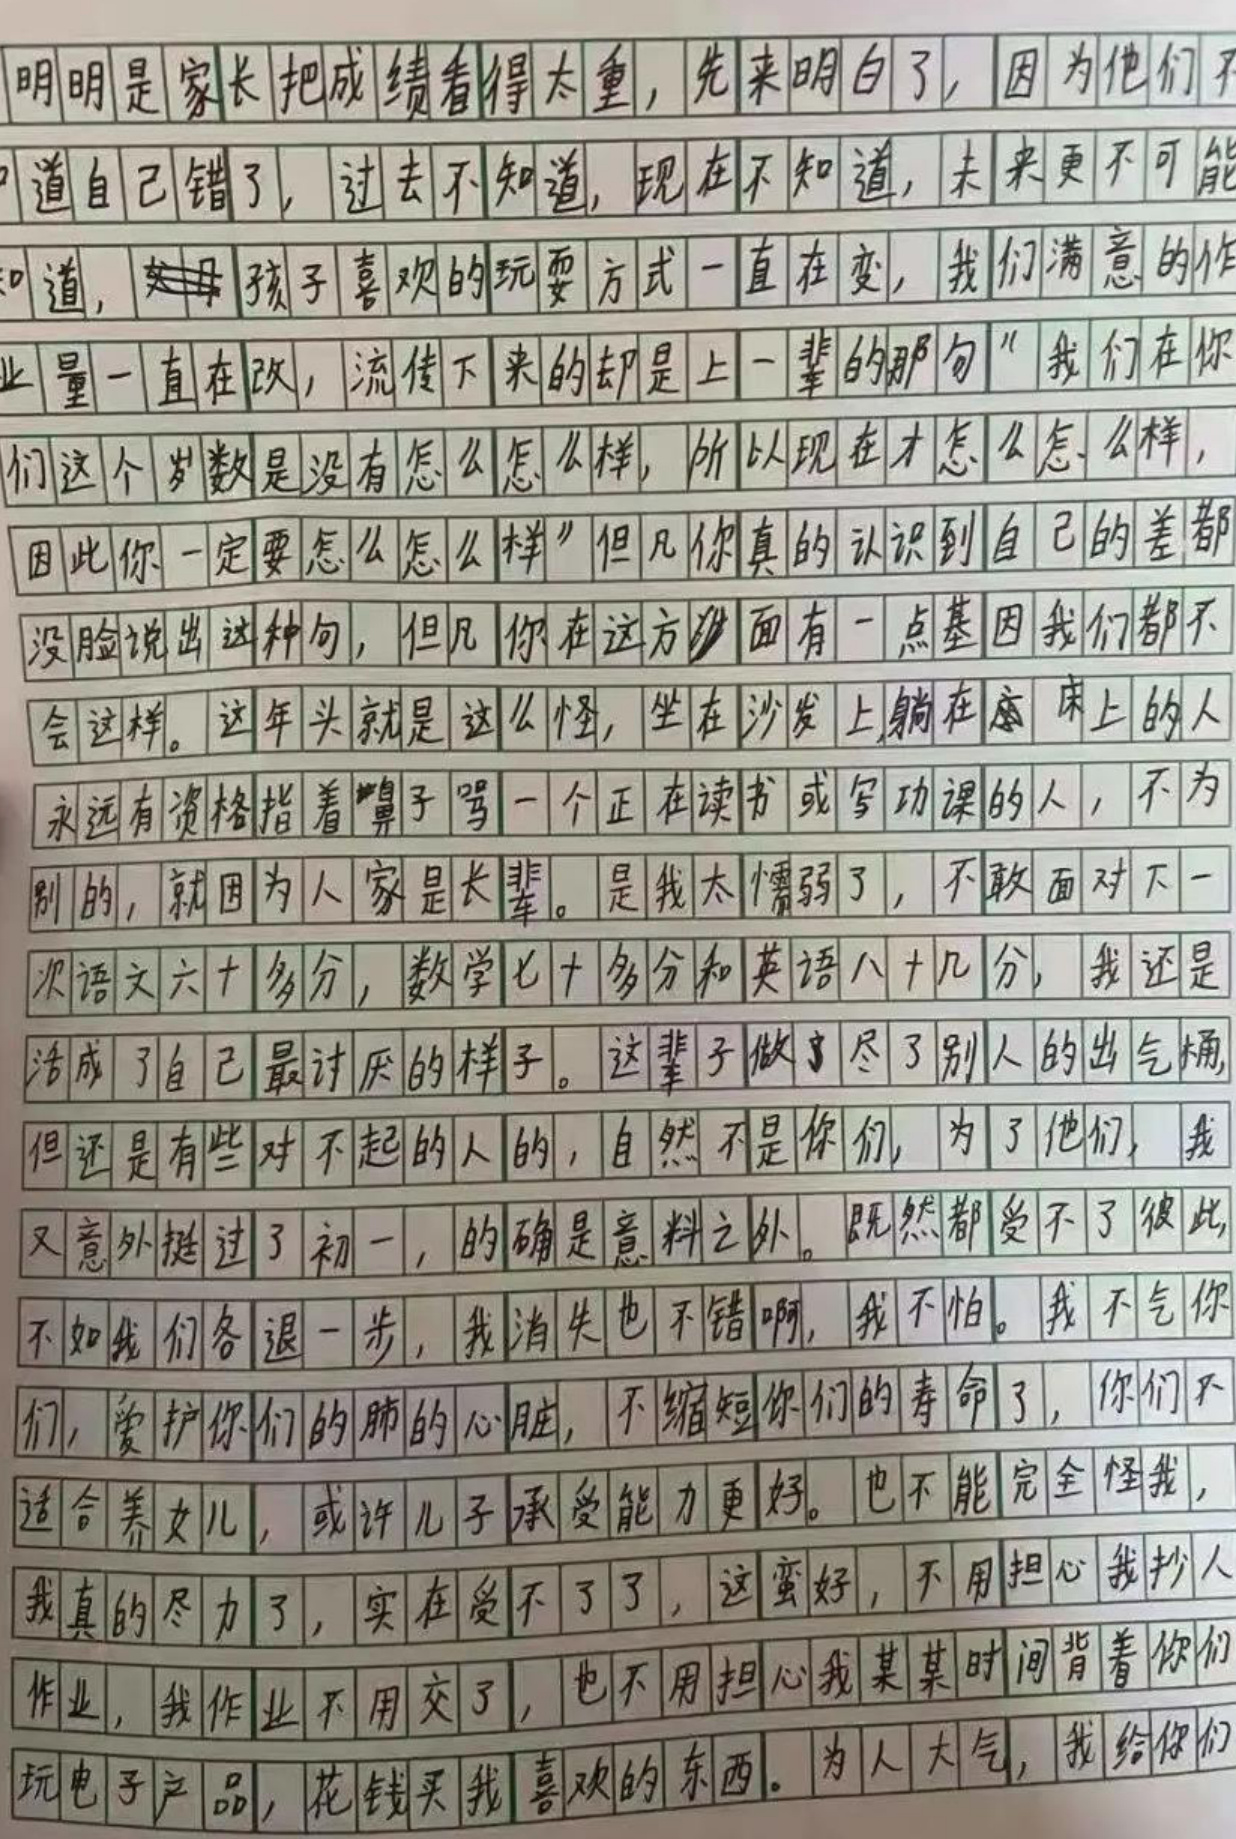 明明是家长把成绩看得太重，先来明白了，因为他们不
道自己错了，过去不知道，现在不知道，未来更不可能
知道，孩子喜欢的玩耍方式一直在变，我们满意的作
业量一直在改，流传下来的却是上一辈的那句“我们在你
们这个岁数是没有怎么怎么样，所以现在才怎么怎么样，
因此你一定要怎么怎么样”但凡你真的认识到自己的差都
没脸说出这种句，但凡你在这方面有一点基因我们都不
会这样。这年头就是这么怪，坐在沙发上,躺在床上的人
永远有资格指着鼻子骂一个正在读书或写功课的人，不为
别的，就因为人家是长辈。是我太懦弱了，不敢面对下一
次语文六十多分，数学七十多分和英语八十几分，我还是
活成了自己最讨厌的样子。这辈子做尽了别人的出气桶，
但还是有些对不起的人的，自然不是你们，为了他们，我
又意外挺过了初一，的确是意料之外。既然都受不了彼此，
不如我们各退一步，我消失也不错啊，我不怕。我不气你
们，爱护你们的肺的心脏，不缩短你们的寿命了，你们不
适合养女儿，或许儿子承受能力更好。也不能完全怪我，
我真的尽力了，实在受不了了，这蛮好，不用担心我抄人
作业，我作业不用交了，也不用担心我某某时间背着你们
玩电子产品，花钱买我喜欢的东西。为人大气，我给你们